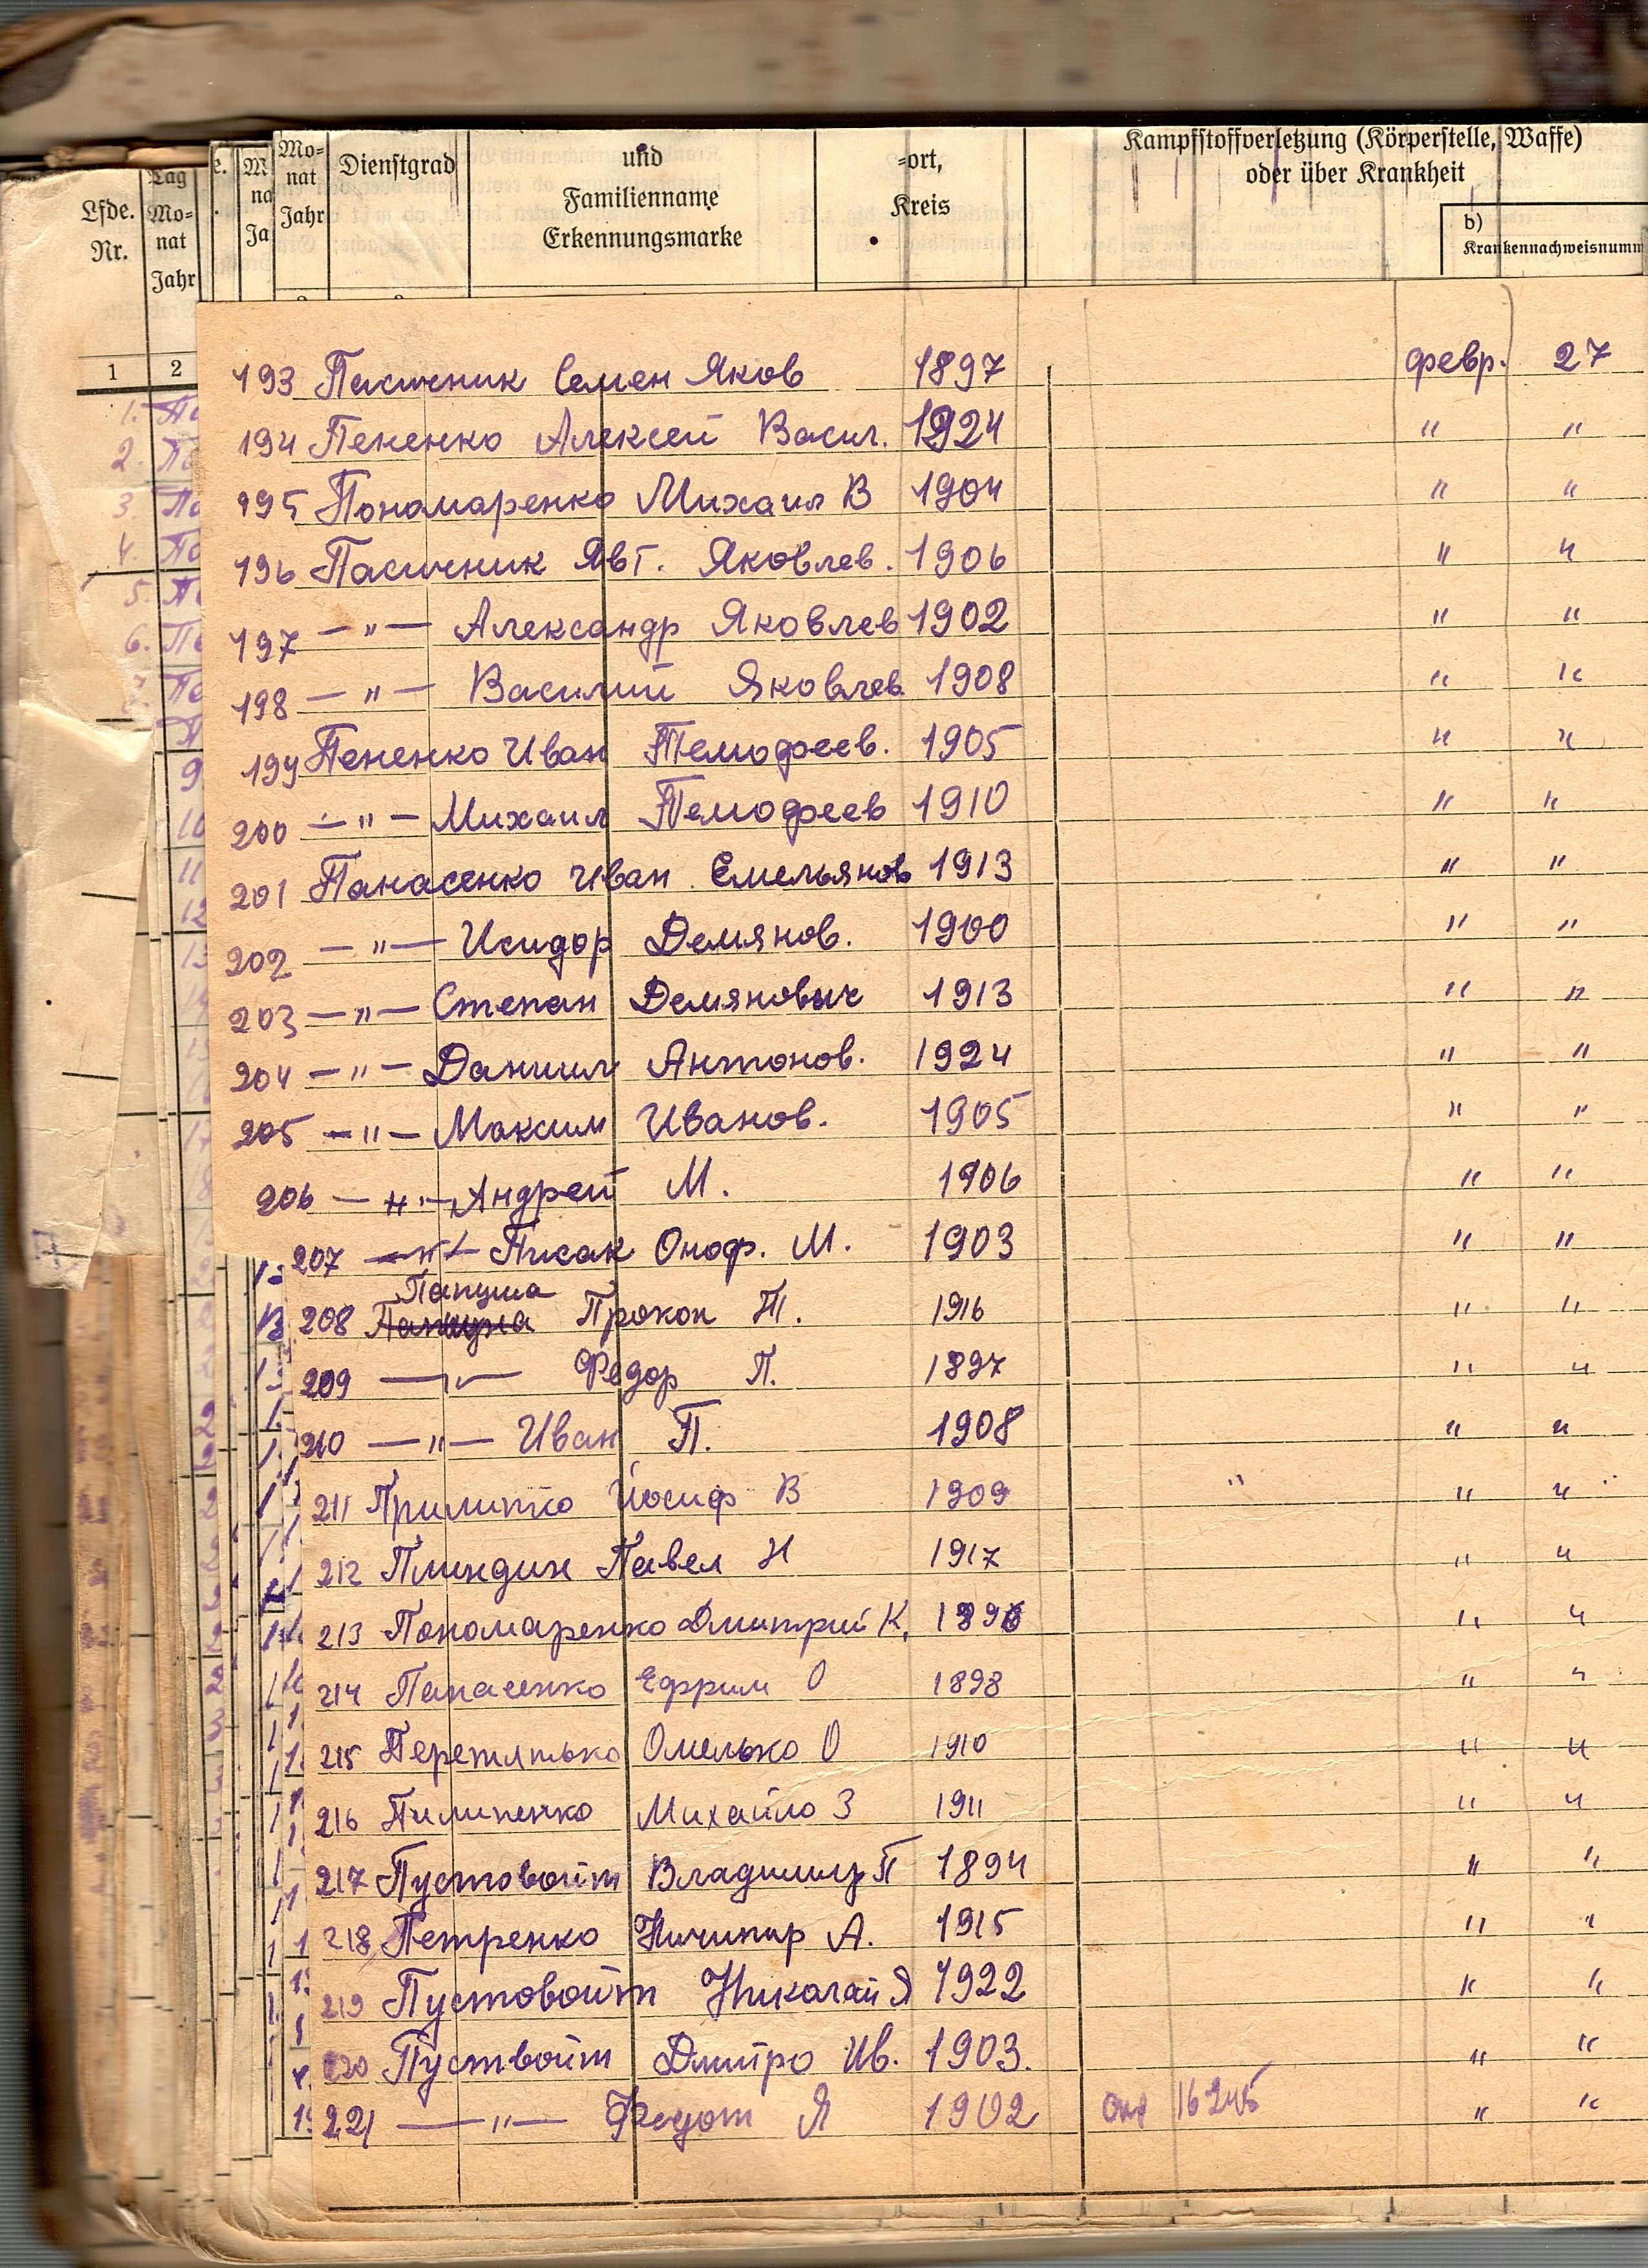 Lfde. Nr.
Tag Mo- nat Jahr
Mo- nat Jahr
Dienstgrad
und
Familienname
Erkennungsmarke
-ort,
Kreis
Kampfstoffverletzung (Körperstelle, Waffe)
oder über Krankheit
b)
Krankennachweisnumm
1 2
193 Пасичник Семен Яков 1897 февр. 27
194 Пененко Алексей Васил. 1924 " "
195 Пономаренко Михаил В 1904 " "
196 Пасичник Явт. Яковлев. 1906 " "
197 —"— Александр Яковлев 1902 " "
198 —"— Василий Яковлев. 1908 " "
199 Пененко Иван Темофеев. 1905 " "
200 —"— Михаил Темофеев 1910 " "
201 Панасенко Иван Емельянов 1913 " "
202 —"— Исидор Демянов. 1900 " "
203 —"— Степан Демянович 1913 " "
204 —"— Даниил Антонов. 1924 " "
205 —"— Максим Иванов. 1905 " "
206 —"— Андрей М. 1906 " "
207 —"— Писак Оноф. М. 1903 " "
Папуша
208 Прокоп Т. 1916 " "
209 —"— Федор П. 1897 " "
210 —"— Иван П. 1908 " "
211 Прилипко Йосиф В 1909 " " "
212 Плиндин Павел Н 1917 " "
213 Пономаренко Дмитрий К. 1896 " "
214 Панасенко Ефрим О 1898 " "
215 Перетятько Омелько О 1910 " "
216 Пилипенко Михайло З 1911 " "
217 Пустовойт Владимир П 1894 " "
218 Петренко Ничипир А. 1915 " "
219 Пустовойт Николай Я 1922 " "
220 Пуствойт Дмитро Ив. 1903. " "
221 —"— Федот Я 1902 16245 " "